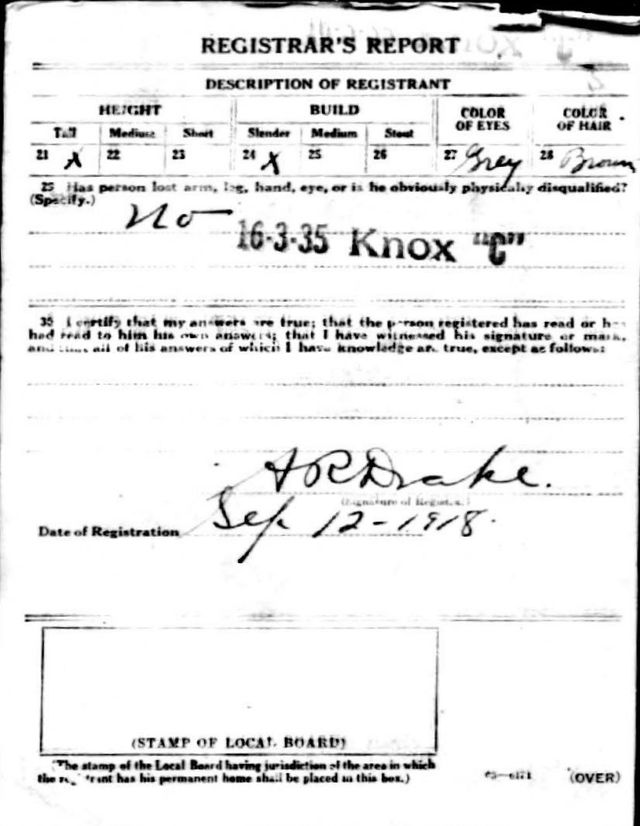 REGISTRAR'S REPORT
DESCRIPTION OF REGISTRANT
HEIGHT BUILD COLOR OF EYES COLOR OF HAIR
Tall Medium Short Slender Medium Stout
21 X 22 23 24 X 25 26 27 Grey 28 Brown
29 Has person lost arm, leg, hand, eye, or is he obviously physically disqualified?
(Specify.)
No
16-3-35 Knox "C"
30 I certify that my answers are true; that the person registered has read or has
had read to him his own answers; that I have witnessed his signature or mark,
and that all of his answers of which I have knowledge are true, except as follows:
A R Drake.
(Signature of Registrar)
Date of Registration Sep. 12-1918.
(STAMP OF LOCAL BOARD)
(The stamp of the Local Board having jurisdiction of the area in which
the registrant has his permanent home shall be placed in this box.)
(OVER)